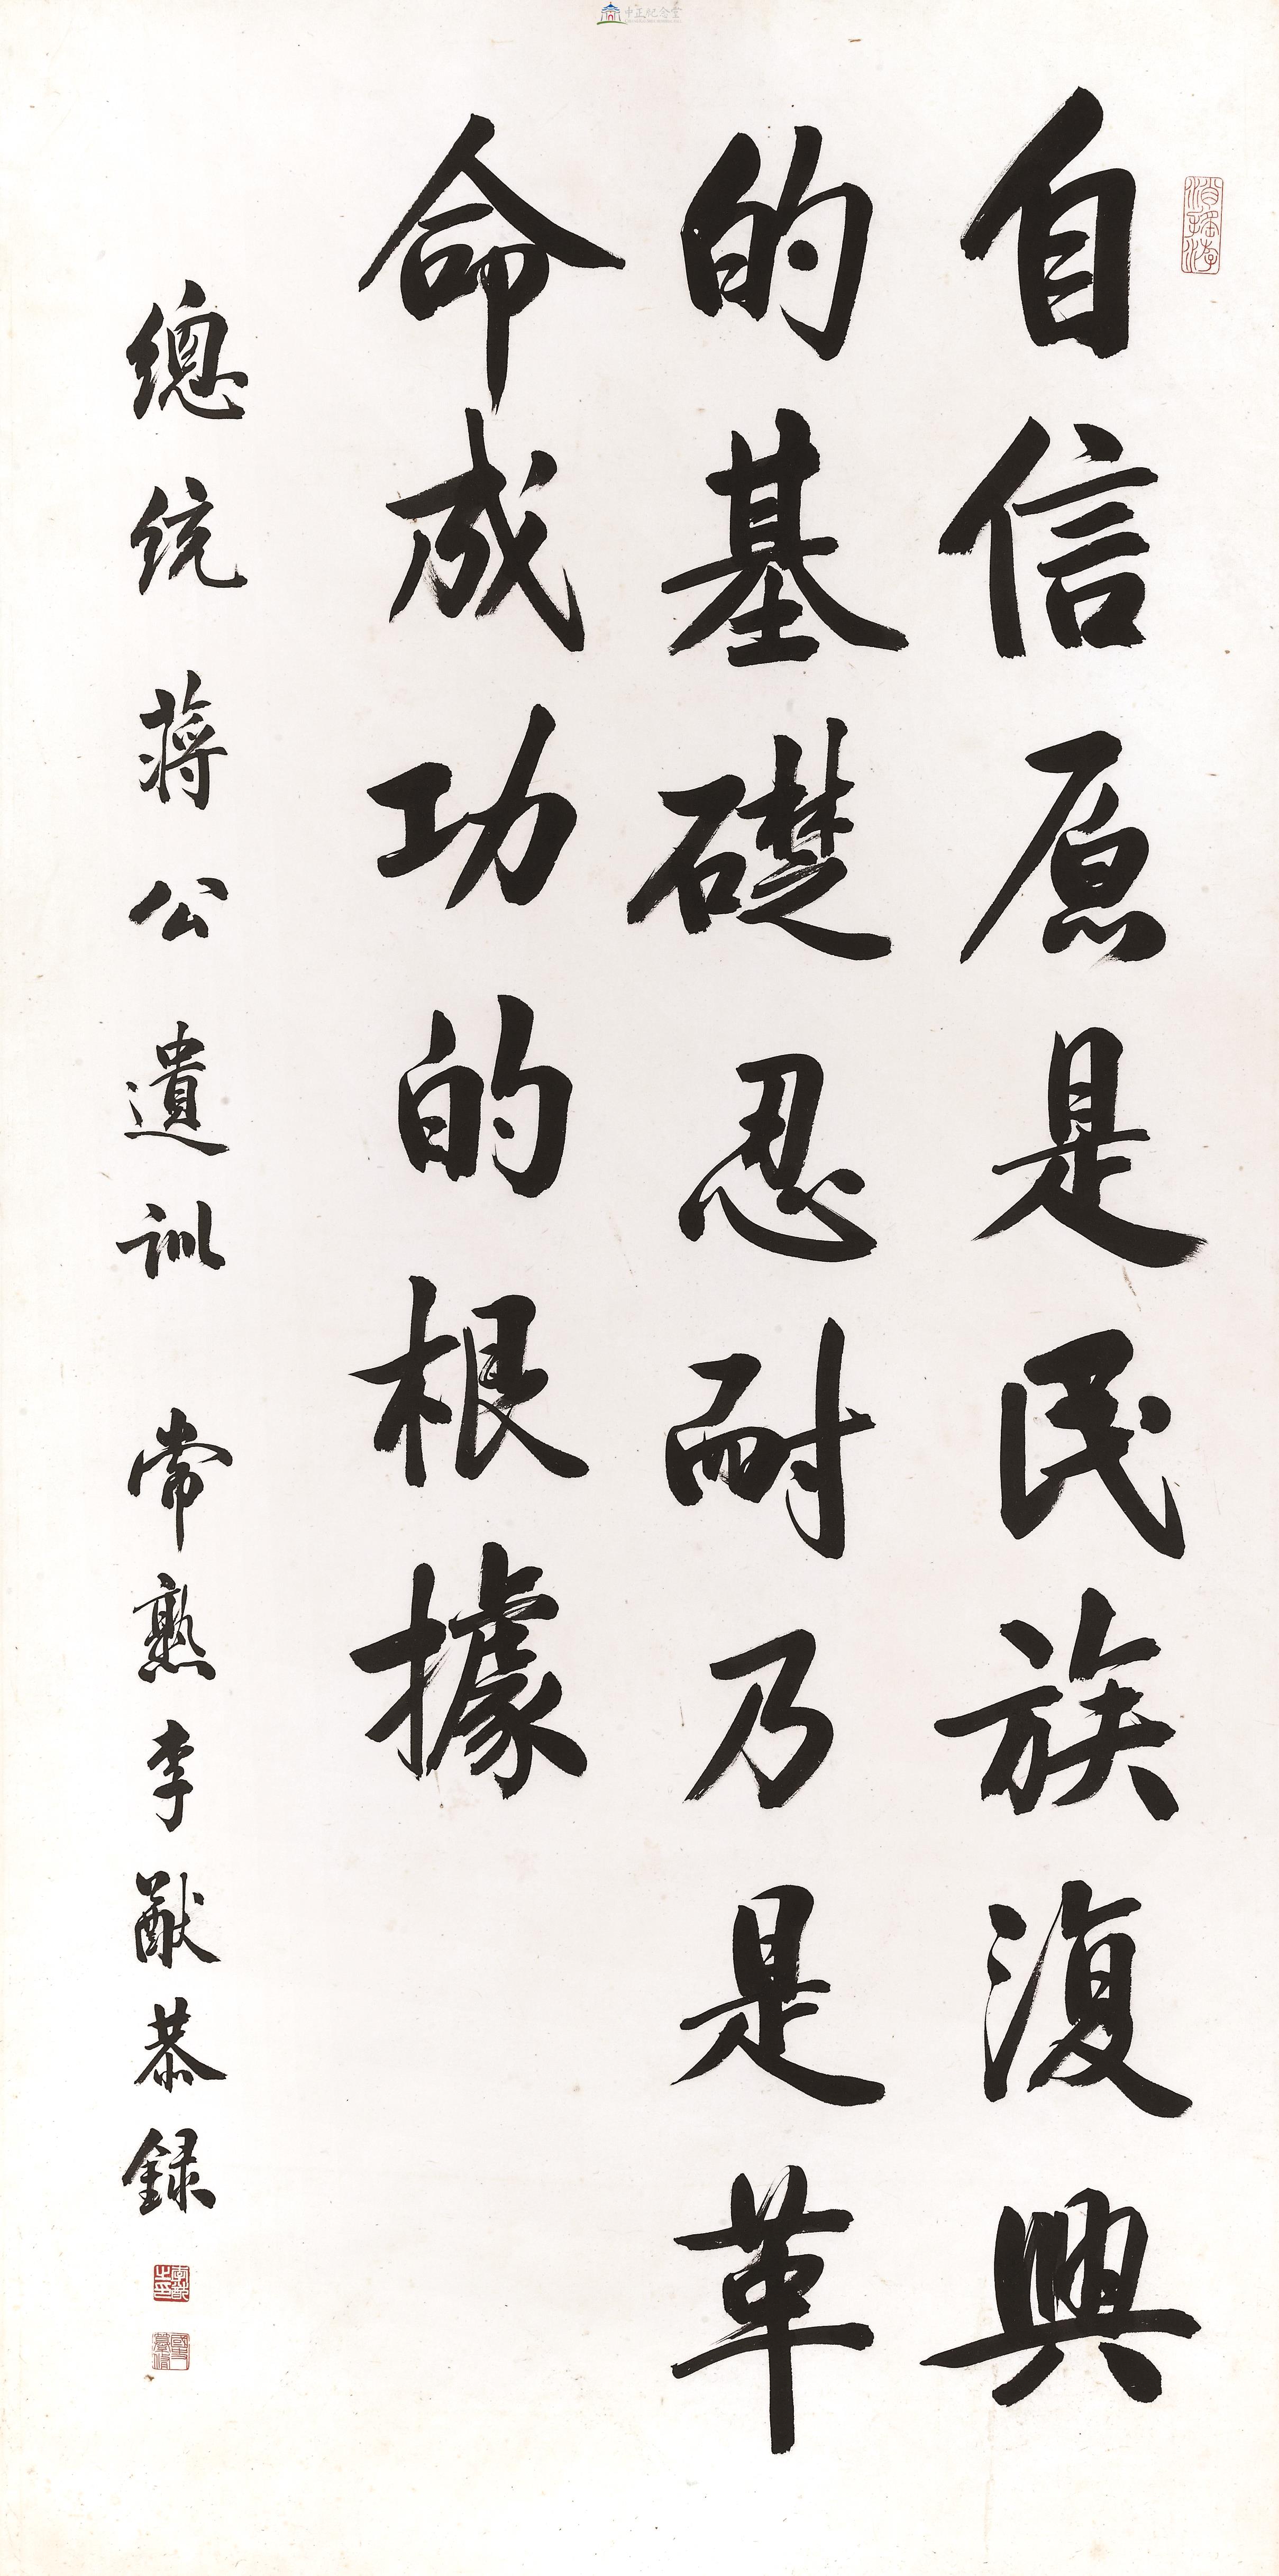 自信原是民族復興
的基礎忍耐乃是革
命成功的根據
總統蔣公遺訓 常熟李猷恭錄
中正紀念堂
李猷之印